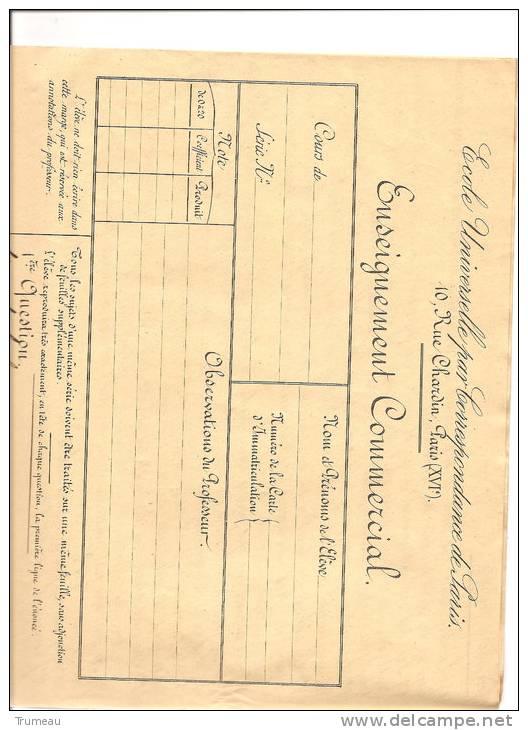 Ecole Universelle par Correspondance de Paris.
10, Rue Chardin, Paris (XVIe).
Enseignement Commercial.
Cours de
Série No
Nom et Prénoms de l'Elève
Numéro de la Carte
d'Immatriculation
Note
de 0 à 20
Coefficient
Produit
Observations du Professeur
L'élève ne doit rien écrire dans
cette marge, qui est réservée aux
annotations du professeur.
Tous les sujets d'une même série doivent être traités sur une même feuille, sans adjonction
de feuilles supplémentaires.
L'élève reproduira très exactement, en tête de chaque question, la première ligne de l'énoncé.
1ère Question,
Trumeau
delcampe.net